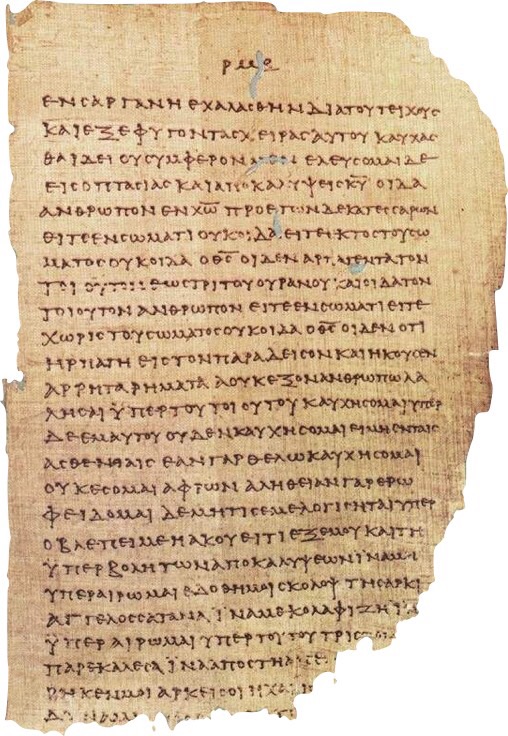 ρμε
ΕΝϹΑΡΓΑΝΗΕΧΑΛΑϹΘΗΝΔΙΑΤΟΥΤΕΙΧΟΥϹ
ΚΑΙΕΞΕΦΥΓΟΝΤΑϹΧΕΙΡΑϹΑΥΤΟΥΚΑΥΧΑϹ
ΘΑΙΔΕΙΟΥϹΥΜΦΕΡΟΝΜΕΝΕΛΕΥϹΟΜΑΙΔΕ
ΕΙϹΟΠΤΑϹΙΑϹΚΑΙΑΠΟΚΑΛΥΨΕΙϹΚ̅Υ̅ΟΙΔΑ
ΑΝΘΡΩΠΟΝΕΝΧ̅Ω̅ΠΡΟΕΤΩΝΔΕΚΑΤΕϹϹΑΡΩΝ
ΕΙΤΕΕΝϹΩΜΑΤΙΟΥΚΟΙΔΑΕΙΤΕΕΚΤΟϹΤΟΥϹΩ
ΜΑΤΟϹΟΥΚΟΙΔΑΟΘ̅Ϲ̅ΟΙΔΕΝΑΡΠΑΓΕΝΤΑΤΟΝ
ΤΟΙΟΥΤΟΝΕΩϹΤΡΙΤΟΥΟΥΡΑΝΟΥΚΑΙΟΙΔΑΤΟΝ
ΤΟΙΟΥΤΟΝΑΝΘΡΩΠΟΝΕΙΤΕΕΝϹΩΜΑΤΙΕΙΤΕ
ΧΩΡΙϹΤΟΥϹΩΜΑΤΟϹΟΥΚΟΙΔΑΟΘ̅Ϲ̅ΟΙΔΕΝΟΤΙ
ΗΡΠΑΓΗΕΙϹΤΟΝΠΑΡΑΔΕΙϹΟΝΚΑΙΗΚΟΥϹΕΝ
ΑΡΡΗΤΑΡΗΜΑΤΑΑΟΥΚΕΞΟΝΑΝΘΡΩΠΩΛΑ
ΛΗϹΑΙΫΠΕΡΤΟΥΤΟΙΟΥΤΟΥΚΑΥΧΗϹΟΜΑΙΥΠΕΡ
ΔΕΕΜΑΥΤΟΥΟΥΔΕΝΚΑΥΧΗϹΟΜΑΙΕΙΜΗΕΝΤΑΙϹ
ΑϹΘΕΝΕΙΑΙϹΕΑΝΓΑΡΘΕΛΩΚΑΥΧΗϹΟΜΑΙ
ΟΥΚΕϹΟΜΑΙΑΦΡΩΝΑΛΗΘΕΙΑΝΓΑΡΕΡΩ
ΦΕΙΔΟΜΑΙΔΕΜΗΤΙϹΕΜΕΛΟΓΙϹΗΤΑΙΥΠΕΡ
ΟΒΛΕΠΕΙΜΕΗΑΚΟΥΕΙΤΙΕΞΕΜΟΥΚΑΙΤΗ
ΫΠΕΡΒΟΛΗΤΩΝΑΠΟΚΑΛΥΨΕΩΝΪΝΑΜΗ
ΥΠΕΡΑΙΡΩΜΑΙΕΔΟΘΗΜΟΙϹΚΟΛΟΨΤΗϹΑΡΚΙ
ΑΓΓΕΛΟϹϹΑΤΑΝΑΪΝΑΜΕΚΟΛΑΦΙΖΗΪΝΑ
ΫΠΕΡΑΙΡΩΜΑΙΥΠΕΡΤΟΥΤΟΥΤΡΙϹ
ΠΑΡΕΚΑΛΕϹΑΪΝΑΑΠΟϹΤΗΑΠΕ
ΡΗΚΕΝΜΟΙΑΡΚΕΙϹΟΙΗΧΑΡΙ
ΔΥΝΑΜΙϹ